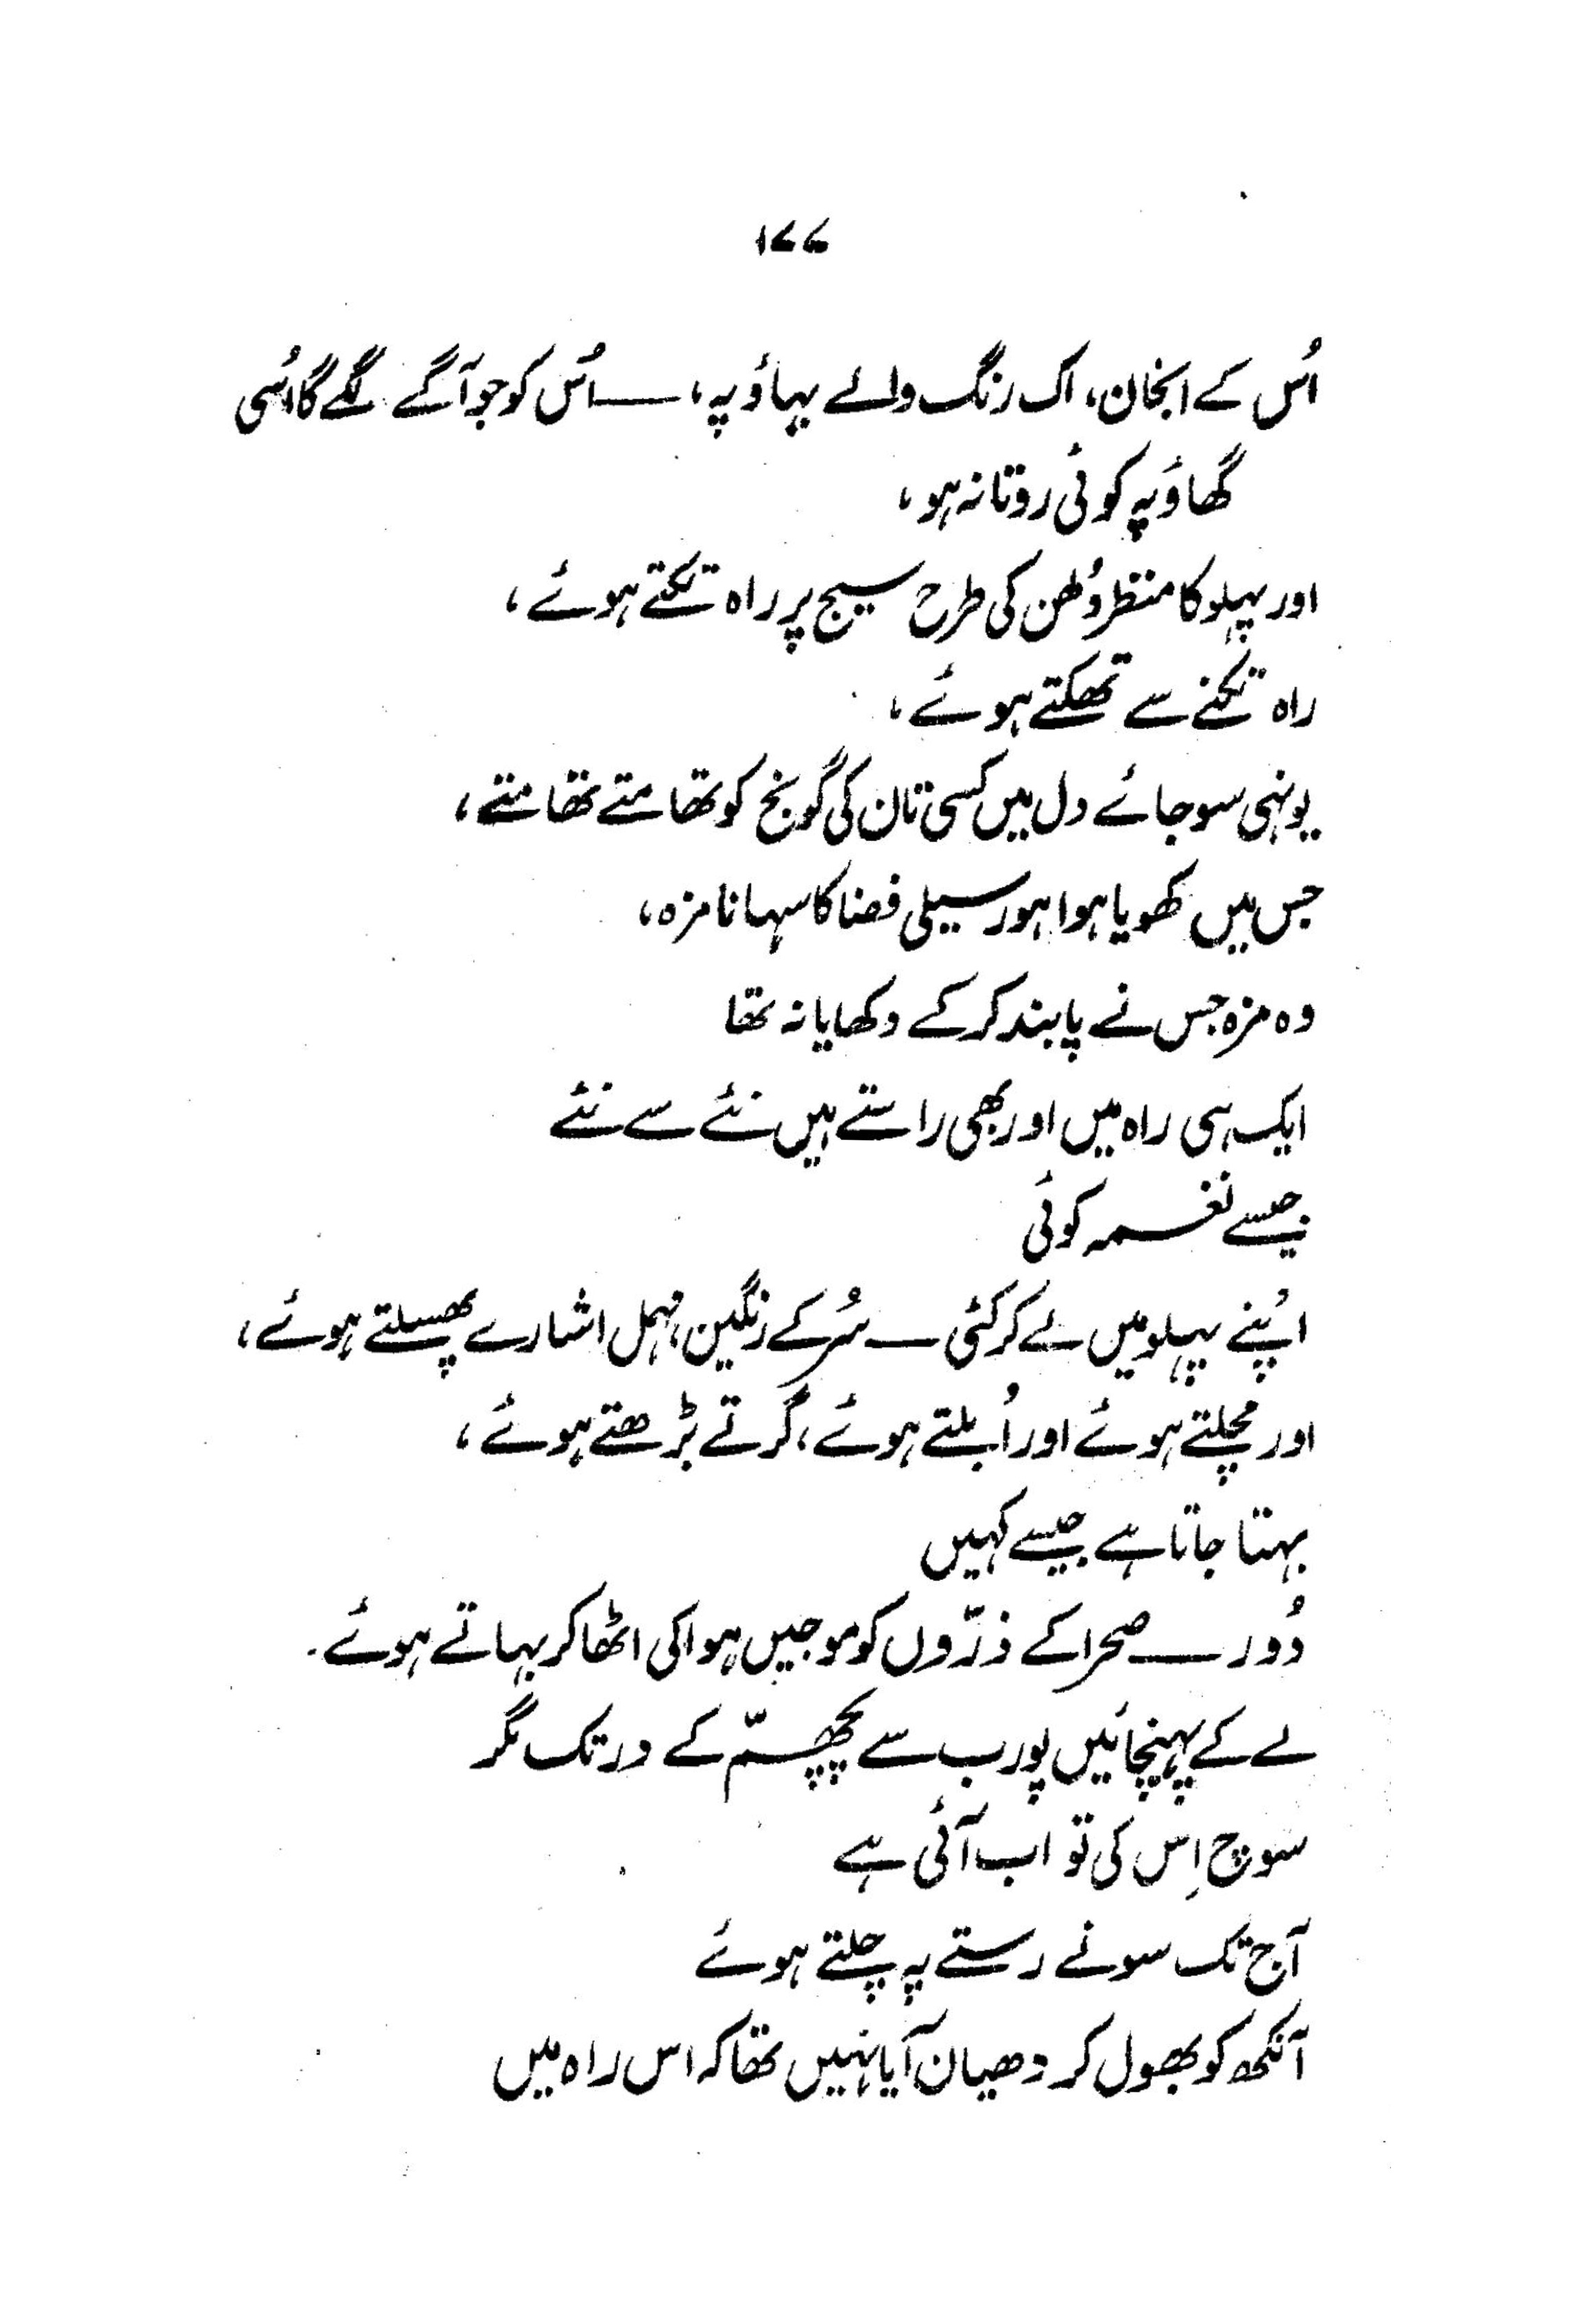 ۱۷۷
اُس کے انجان، اک رنگ والے بہاؤ پہ، ــــ اُس کو جو آگے لگے گا اُسی
گھاؤ پہ کوئی روتا نہ ہو،
اور پہلو کا منظر دُلھن کی طرح سیج پر راہ تکتے ہوئے،
راہ تکنے سے تھکتے ہوئے،
یونہی سو جائے دل میں کسی تان کی گونج کو تھامتے تھامتے،
جس میں کھویا ہوا ہو رسیلی فضا کا سہانا مزہ،
وہ مزہ جس نے پابند کر کے دکھایا نہ تھا
ایک ہی راہ میں اور بھی راستے ہیں نئے سے نئے
جیسے نغمہ کوئی
اپنے پہلو میں لے کر کئی ــــ سُر کے رنگین، مہمل اشارے پھسلتے ہوئے،
اور مچلتے ہوئے اور اُبلتے ہوئے، گرتے بڑھتے ہوئے،
بہتا جاتا ہے جیسے کہیں
دُور ــــ صحرا کے ذرّوں کو موجیں ہوا کی اٹھا کر بہاتے ہوئے۔
لے کے پہنچائیں پورب سے پچھمّ کے در تک مگر
سوچ اِس کی تو اب آئی ہے
آج تک سونے رستے پہ چلتے ہوئے
آنکھ کو بھول کر دھیان آیا نہیں تھا کہ اس راہ میں